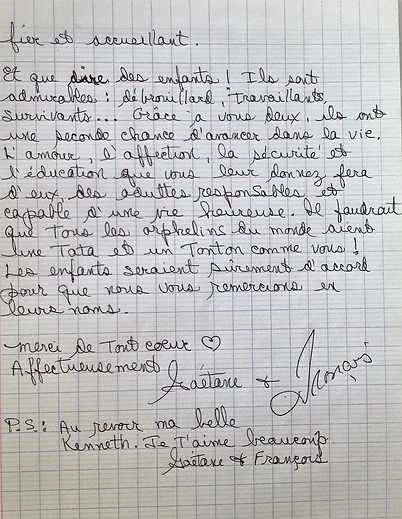 fier et accueillant.
Et que dire des enfants! Ils sont
admirables: débrouillard, Travaillants,
survivants... Grâce à vous deux, ils ont
une seconde chance d'avancer dans la vie.
L'amour, l'affection, la sécurité et
l'éducation que vous leur donnez fera
d'eux des adultes responsables et
capable d'une vie heureuse. Il faudrait
que Tous les orphelins du monde aient
une Tata et un Tonton comme vous!
Les enfants seraient sûrement d'accord
pour que nous vous remercions en
leurs noms.
Merci de Tout coeur ♡
Affectueusement
Gaétane & François
P.S.: Au revoir ma belle
Kenneth. Je T'aime beaucoup
Gaétane & François